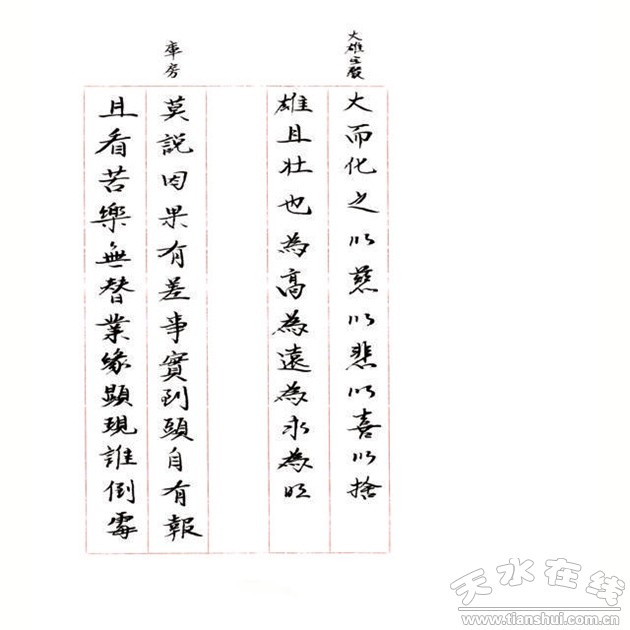 大雄宝殿
大而化之以慈以悲以喜以捨
雄且壮也為高為遠為永為
庫房
莫說因果有差事實到頭自有報
且看苦樂無替業緣顯現誰倒霉
天水在线
www.tianshui.com.cn